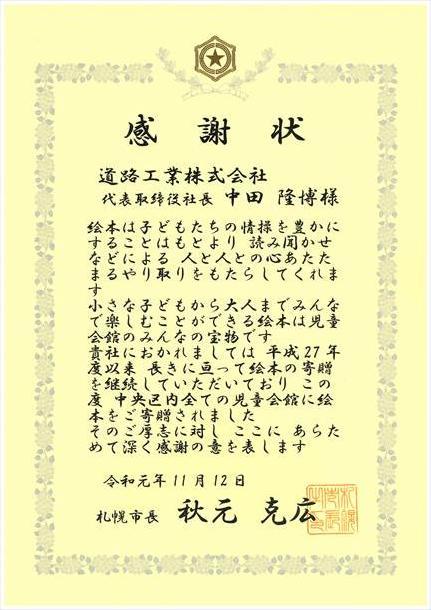 感謝状
道路工業株式会社
代表取締役社長 中田 隆博様
絵本は子どもたちの情操を豊かに
することはもとより 読み聞かせ
などによる 人と人との心あたた
まるやり取りをもたらしてくれま
す
小さな子どもから大人までみんな
で楽しむことができる絵本は児童
会館のみんなの宝物です
貴社におかれましては 平成27年
度以来 長きに亘って絵本の寄贈
を継続していただいており この
度 中央区内全ての児童会館に絵
本をご寄贈されました
そのご厚志に対し ここに あらた
めて深く感謝の意を表します
令和元年11月12日
札幌市長 秋元 克広